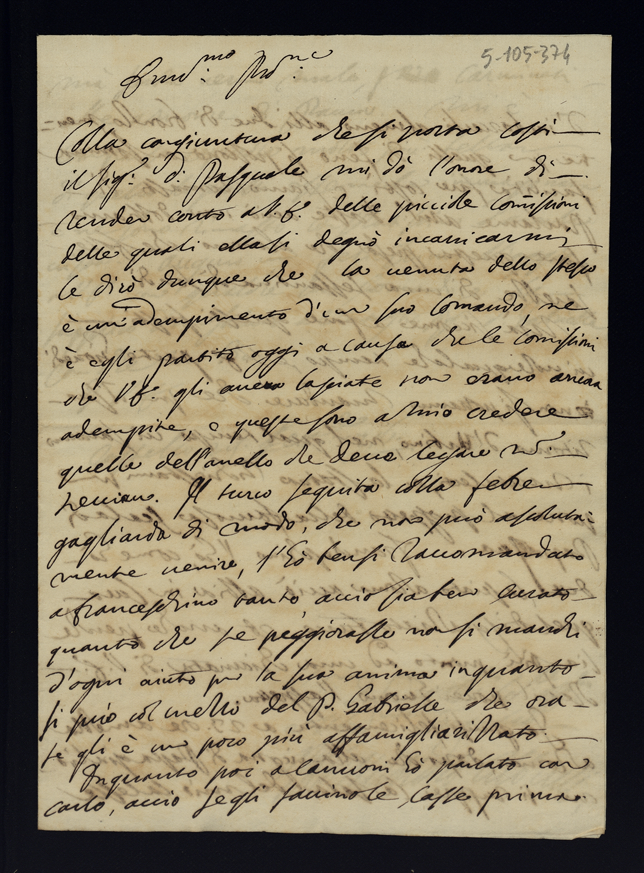 5-105-374
Colla congiuntura che si porta costi
il sig.r D. Pasquale mi dò l'onore di
render conto a V.E. delle picciole comissioni
delle quali ella si degnò incaricarmi
le dirò dunque che la venuta dello stesso
è un adempimento d'un suo comando, ne
è egli partito oggi a causa che le comissioni
che V.E. gli aveva lasciate non erano ancora
adempite, e queste sono a mio credere
quelle dell'anello che deve legare
Il turco seguita colla febre
gagliarda di modo, che non può assoluta=
mente venire, l'hò bensi raccomandato
a Franceschino tanto, acciò sia ben curato
quanto che se peggiorasse non si manchi
d'ogni aiuto per la sua anima inquanto
si può col mezzo del P. Gabriele che
se gli è un poco più affamigliarizzato.
Inquanto poi a hò parlato con
Carlo, acciò segli faccino le casse prima